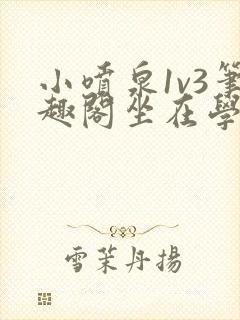 小噴泉1v3筆
趣閣坐在學
雪茉丹揚